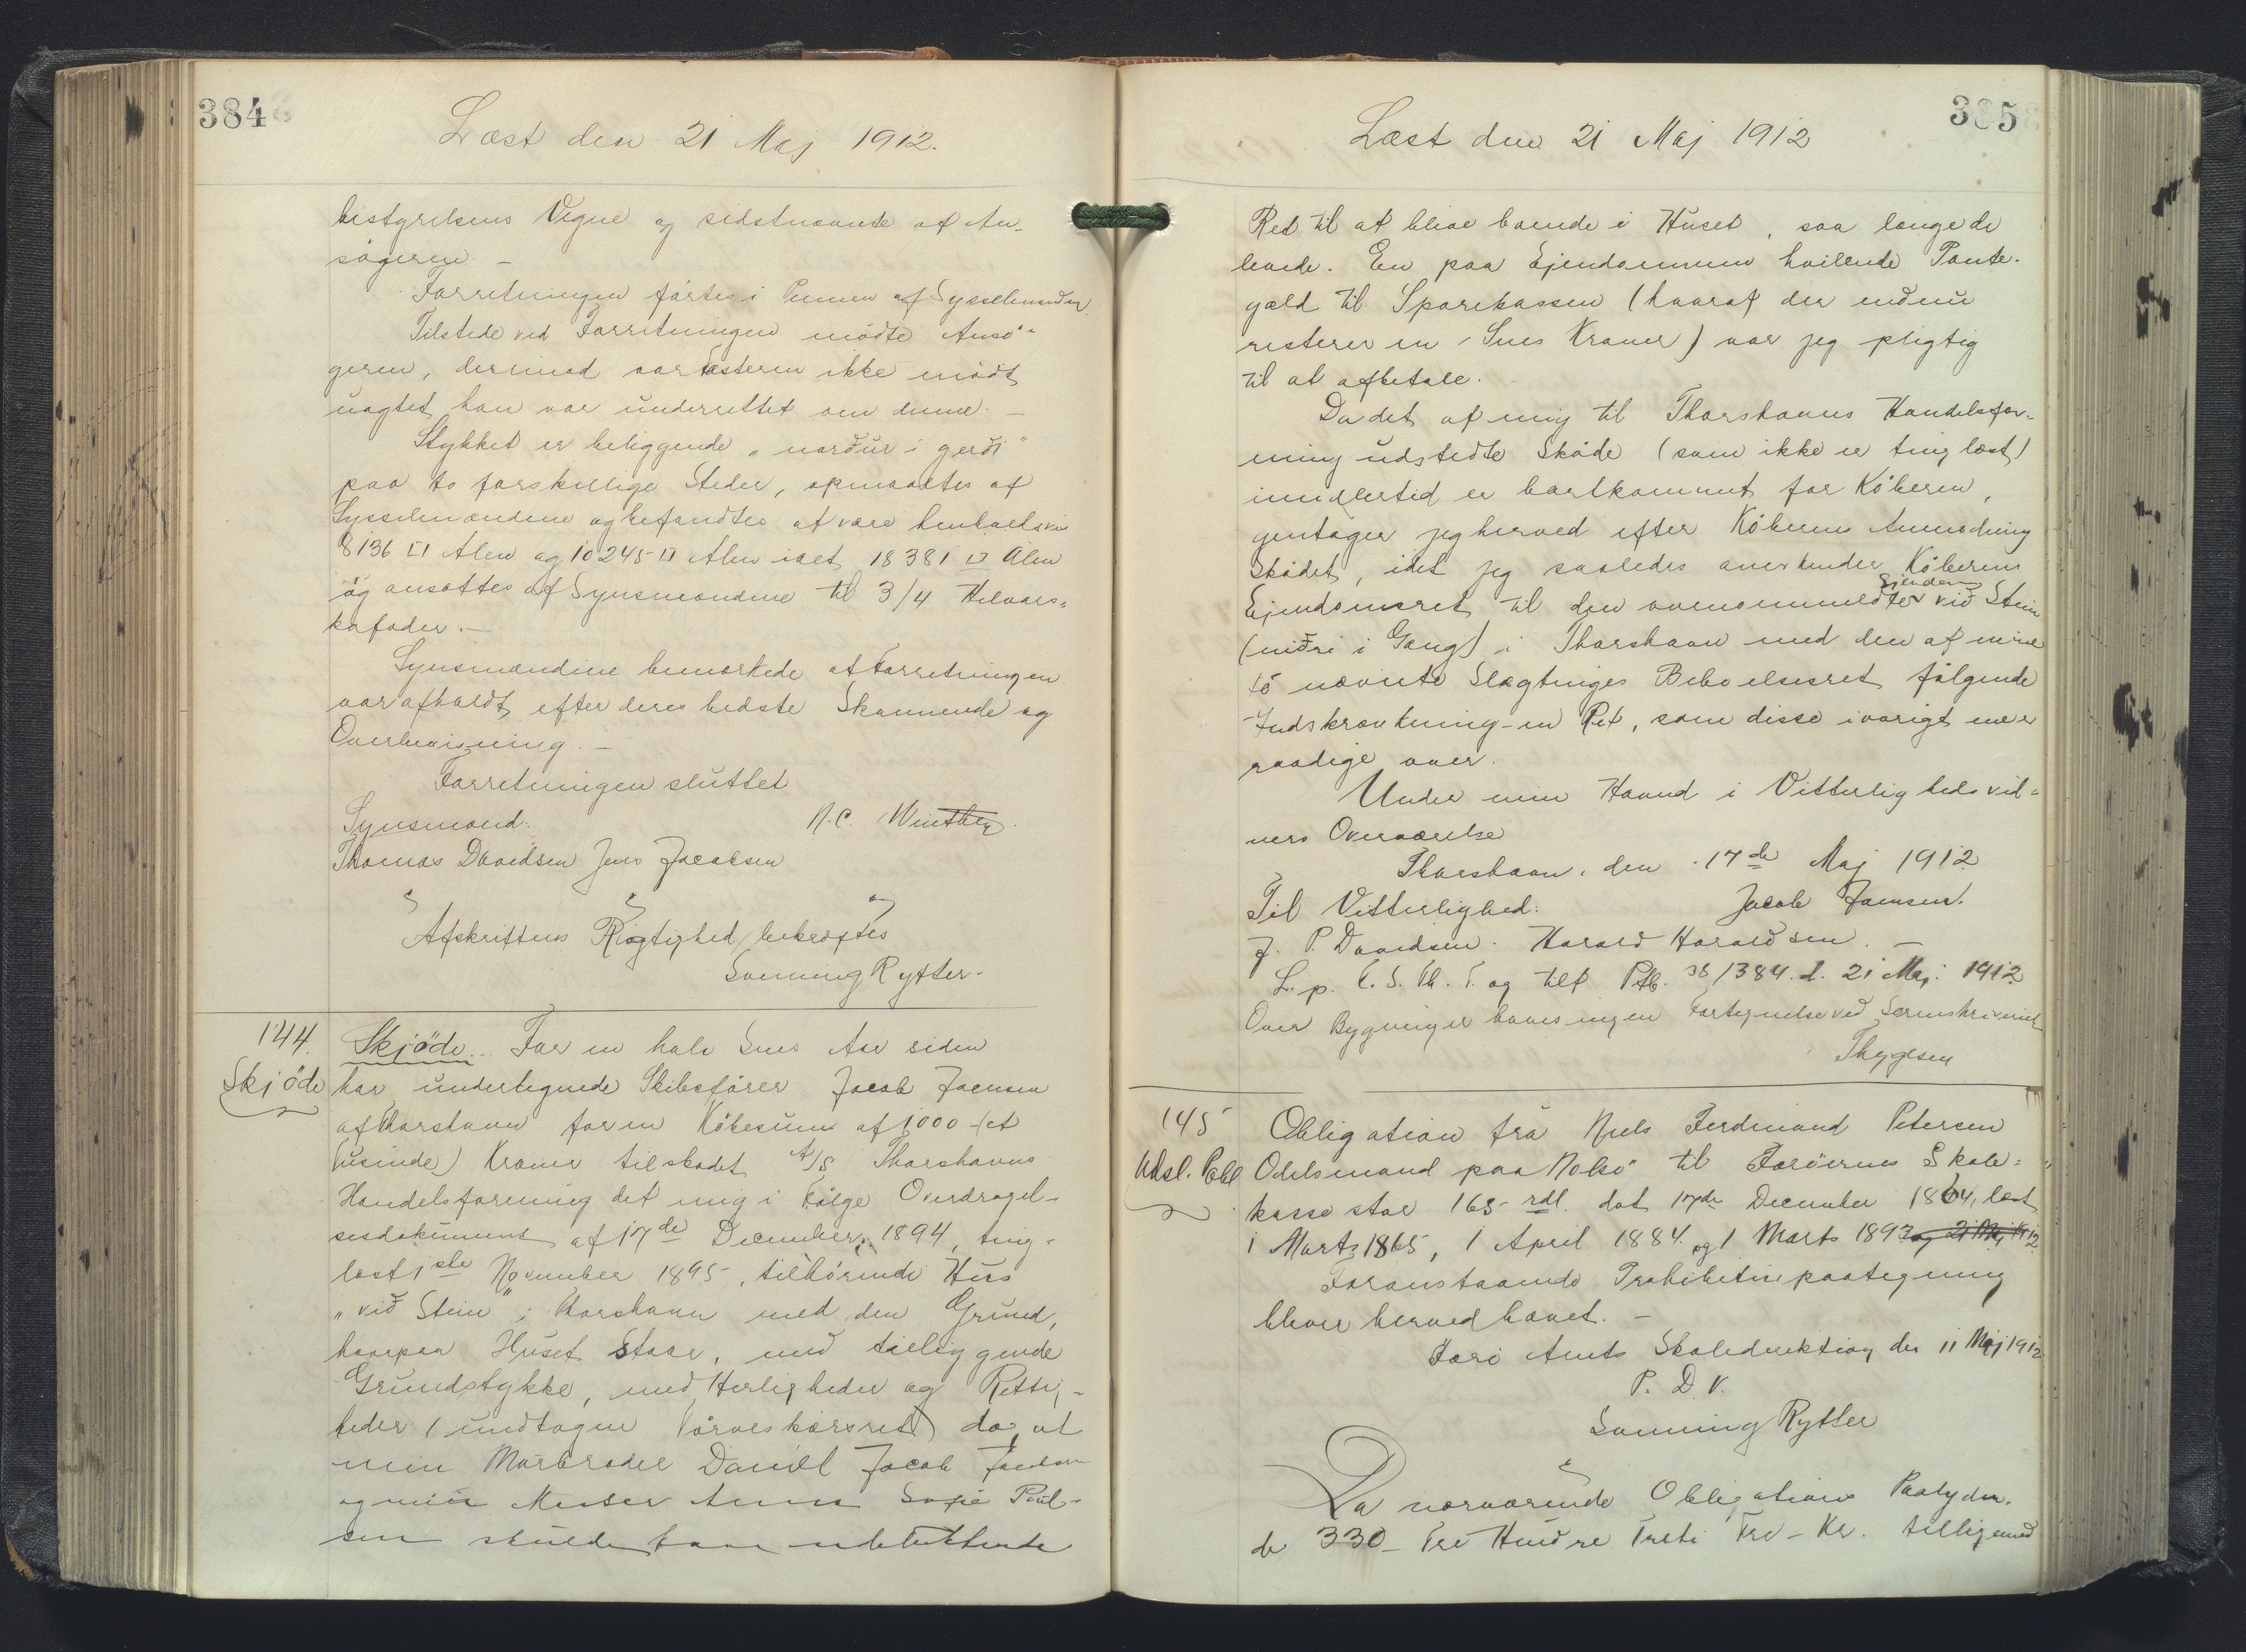 384
Læst den 21 Maj 1912.
bestyrelsens Vegne og sidstnævnte af An-
søgeren. –
Forretningen førtes i Pennen af Sysselmanden
Tilstede ved Forretningen mødte Ansø-
geren, derimod var Fæsteren ikke mødt
uagtet han var underrettet om denne. –
Stykket er beliggende „norður i gerði"
paa to forskellige Steder, opmaaltes af
Sysselmændene og befandtes at være henholdsvis
8136 □ Alen og 10245 □ Alen ialt 18381 □ Alen
og ansattes af Synsmændene til 3/4 Helaars-
kofoder. –
Synsmændene bemærkede at Forretningen
var afholdt efter deres bedste Skønnende og
Overbevisning. –
Forretningen sluttet
Synsmænd. N.C. Winther.
Thomas Davidsen Jens Jacobsen
Afskriftens Rigtighed bekræftes
Sonning Rytter.
144.
Skjøde
Skjøde. For en halv Snes Aar siden
har undertegnede Skibsfører Jacob Joensen
af Thorshavn for en Købesum af 1000 (et
tusinde) Kroner tilskødet A/S Thorshavns
Handelsforening det mig i Følge Overdragel-
sesdokument af 17de December 1894, ting-
læst 1ste November 1895, tilhørende Hus
„við Stein" i Thorshavn med den Grund,
hvorpaa Huset staar, med tilliggende
Grundstykke, med Herligheder og Rettig-
heder (undtagen Tørveskørsret) dog at
min Morbroder Daniel Jacob
og min Moster Anna Sofie Poul-
sen skulde have udelukkende
385
Læst den 21 Maj 1912
Ret til at blive boende i Huset, saa længe de
levede. En paa Ejendommen hvilende Pante-
gæld til Sparekassen (hvoraf der endnu
resterer en Snes Kroner) var jeg pligtig
til at afbetale.
Da det af mig til Thorshavns Handelsfor-
ening udstedte Skøde (som ikke er tinglæst)
imidlertid er bortkommet for Køberen,
gentager jeg herved efter Køberens Anmodning
Skødet, idet jeg saaledes anerkender Køberens
Ejendomsret til den ovenommeldte Ejendom við Stein
(niðri i Gong) i Thorshavn med den af mine
to nævnte Slægtninges Beboelsesret følgende
Indskrænkning – en Ret, som disse iøvrigt ene er
raadige over.
Under min Haand i Vitterligheds vid-
ners Overværelse
Thorshavn, den 17de Maj 1912
Til Vitterlighed: Jacob Joensen.
J. P. Davidsen. Harald Haraldsen. –
L. p. E. S. Th. T. og tilf Ptb. 38/384. d. 21 Maj 1912
Over Bygninger haves ingen Fortegnelse ved Sorenskriveriet
Thygesen
145
Udsl. Obl
Obligation fra Niels Ferdinand Petersen
Odelsmand paa Nolsø til Færøernes Skole-
kasse stor 165 rdl. dat 17de December 1864, læst
1 Marts 1865, 1 April 1884 og 1 Marts 1893 og 21 Maj 1912
Foranstaaende Prohibetivpaategning
bliver herved hævet. –
Færø Amts Skoledirektion den 11 Maj 1912
P. D. V.
Sonning Rytter
Da nærværende Obligation Paalyden-
de 330 – Tre Hundre Treti Kr – Kr. tilligemed